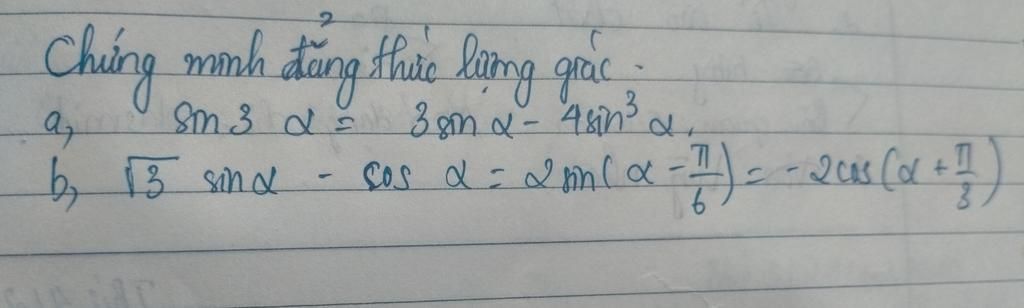 Chứng minh đẳng thức lượng giác.
a, sin 3 α = 3 sin α - 4 sin³ α.
b, √3 sin α - cos α = 2 sin(α - π/6) = -2cos(α + π/3)